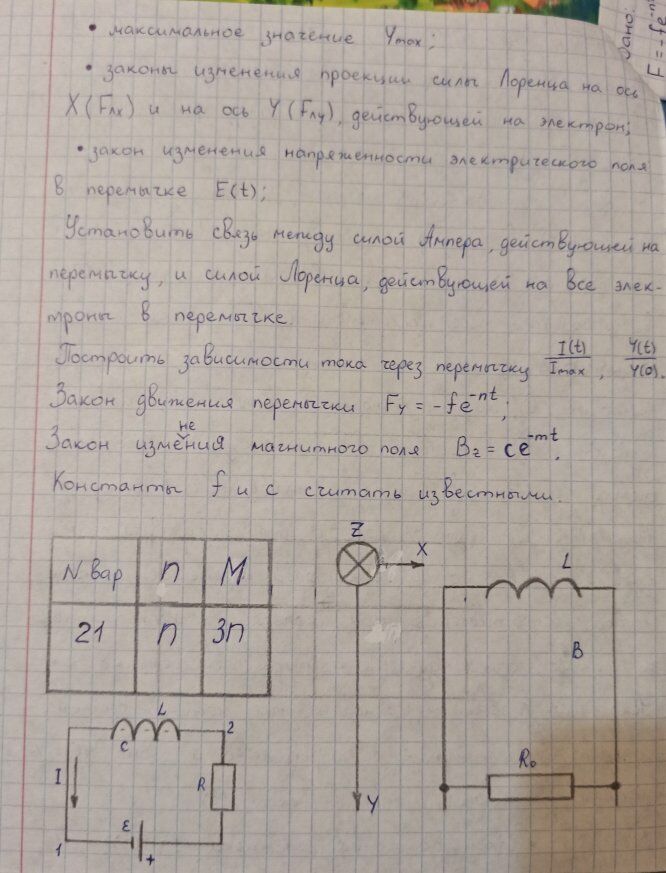 • максимальное значение Ymax;
• законы изменения проекции силы Лоренца на ось
X(Fлx) и на ось Y(Fлy), действующей на электрон;
• закон изменения напряженности электрического поля
в перемычке E(t);
Установить связь между силой Ампера, действующей на
перемычку, и силой Лоренца, действующей на все элек-
троны в перемычке.
Построить зависимости тока через перемычку I(t)/Imax, Y(t)/Y(0).
Закон движения перемычки Fy = -fe^-nt;
Закон изменения магнитного поля Bz = ce^-mt.
Константы f и c считать известными.
N вар n M
21 n 3n
Z
X
Y
L
B
R₀
L
C
2
I
R
ε
1
+
Дано:
F = -fe^-n